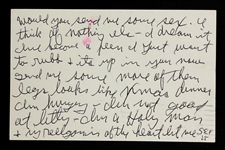 would you send me some sex. Ie
think of nothing else - I dream it
Ive become a feen I just want
to rubb + its up in your now
send me some more of them
legs looks like Xmas dinner
Im hungry - Im not good
at litty - Im a Holy man
+ my religon is of the heart let me
SEP
15